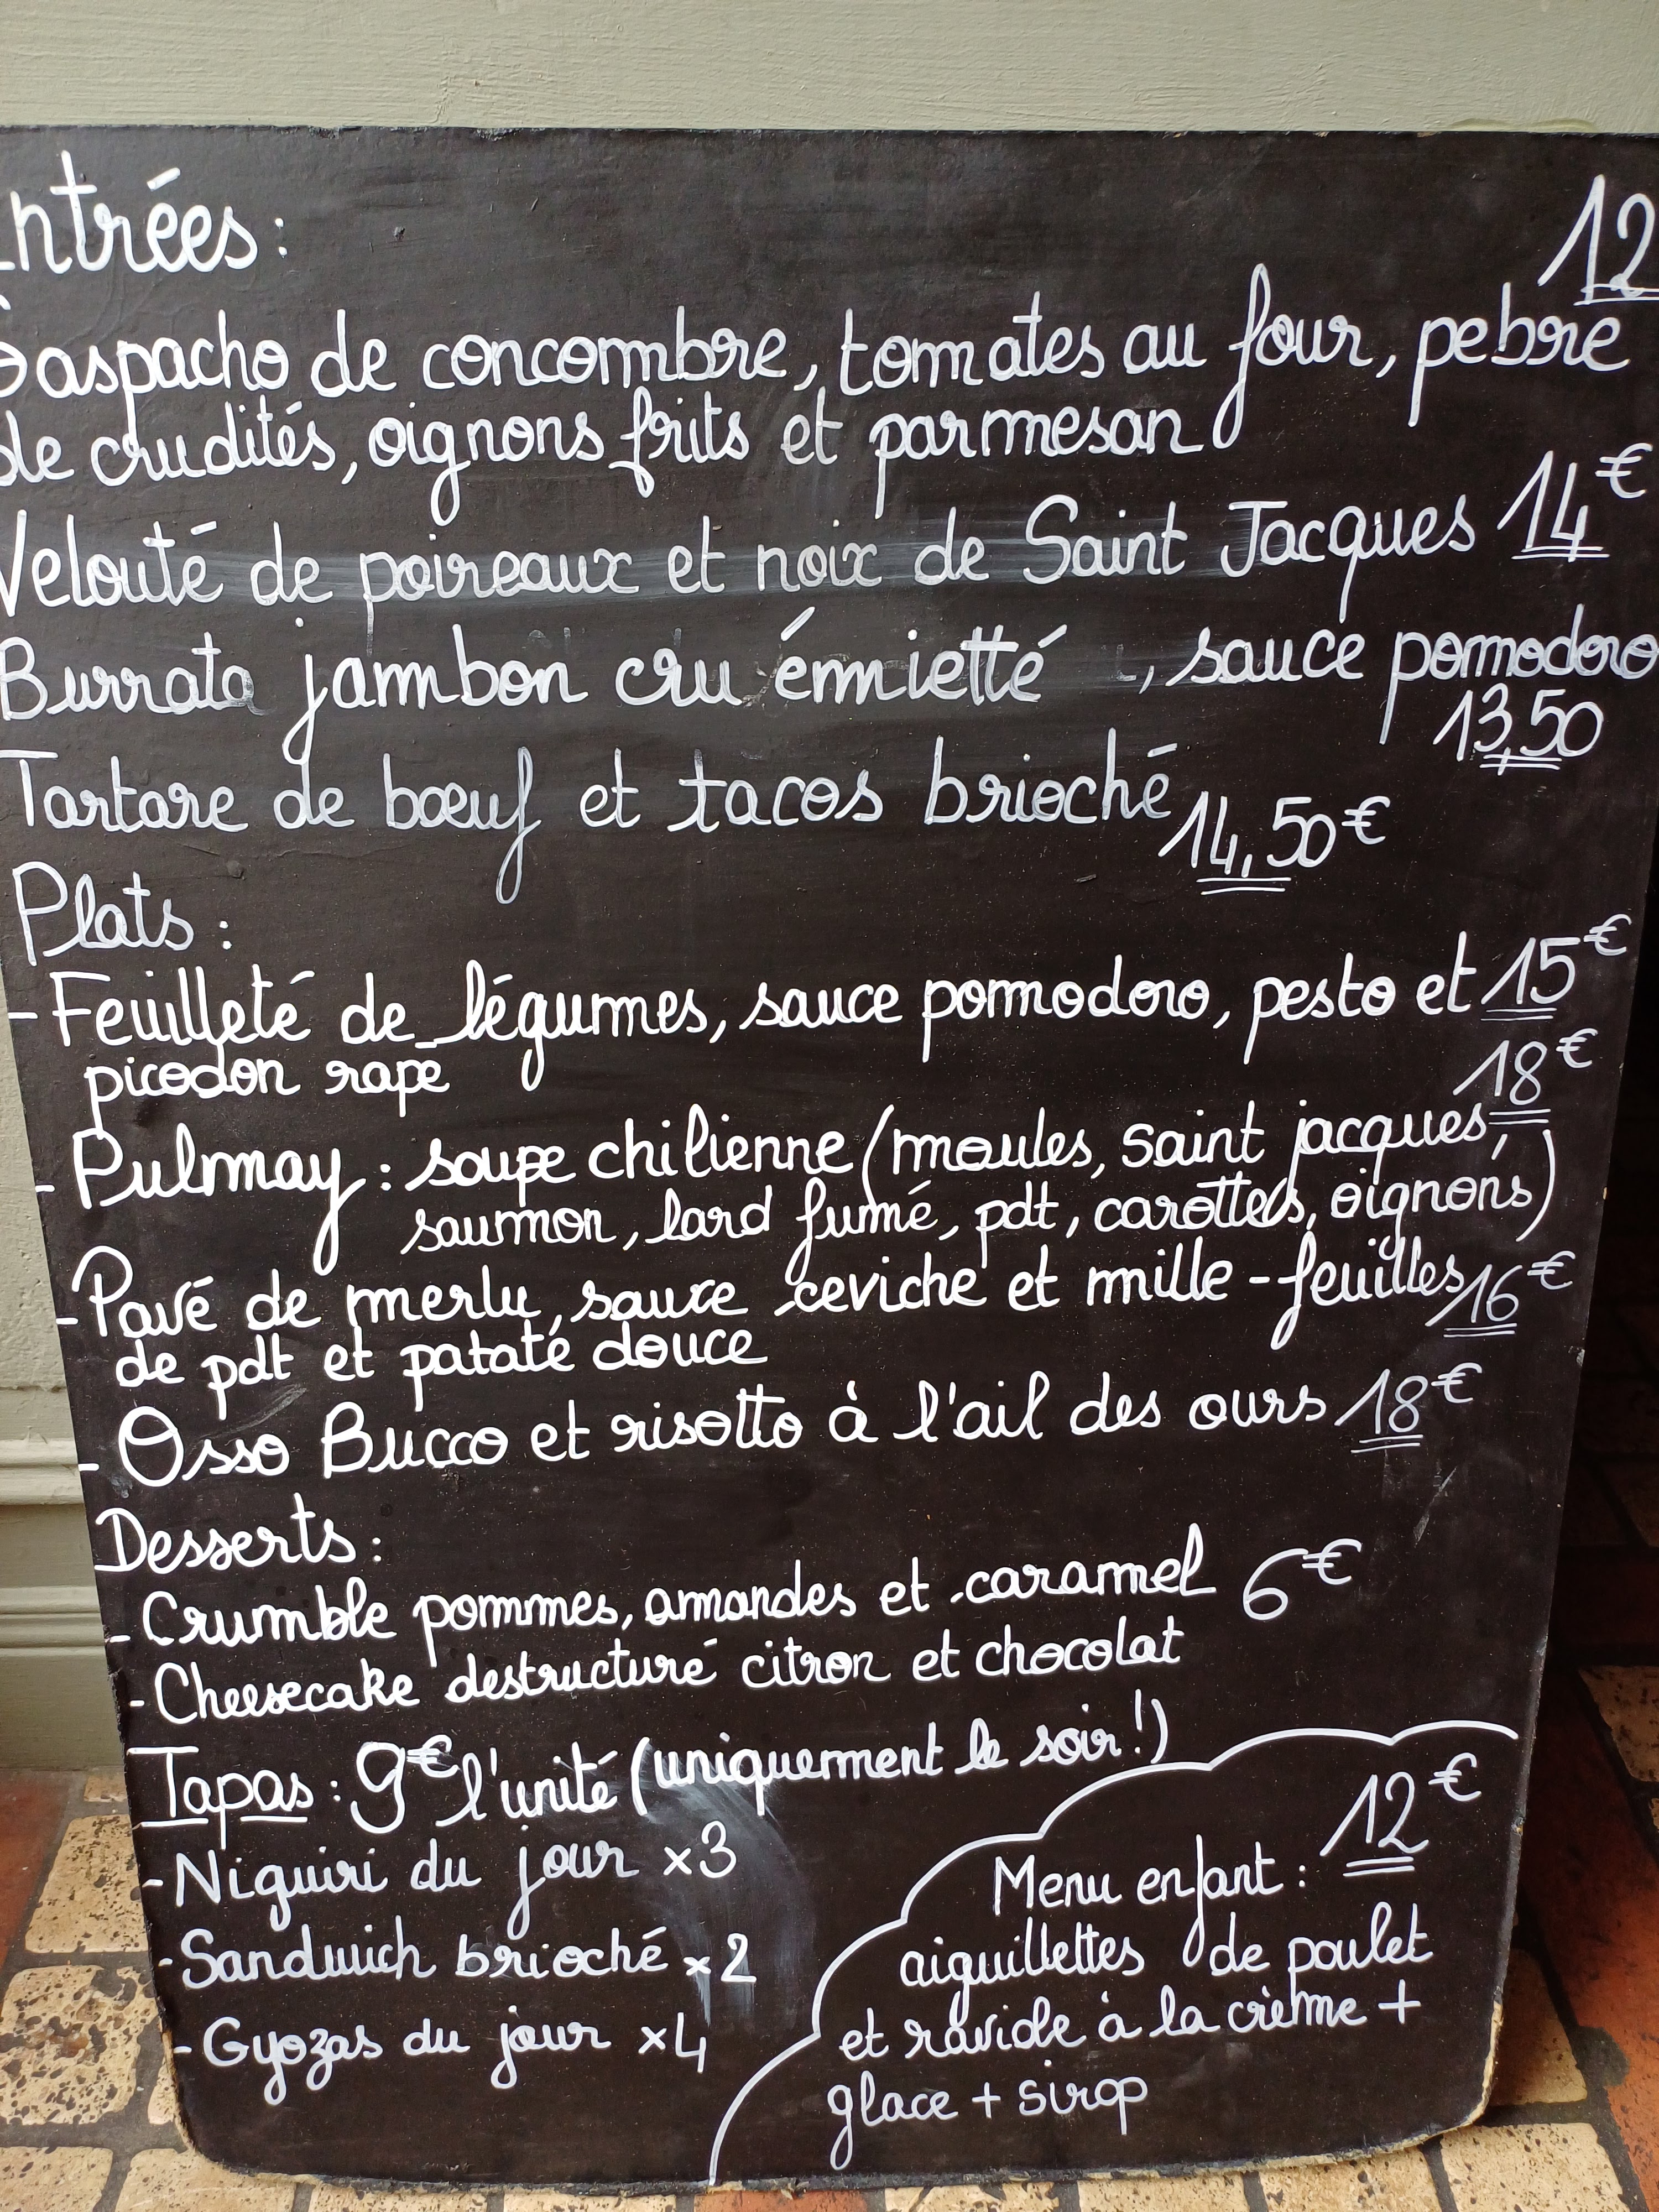 Entrées :
12
Gaspacho de concombre, tomates au four, pebre
de crudités, oignons frits et parmesan
Velouté de poireaux et noix de Saint Jacques 14€
Burrata jambon cru émietté , sauce pomodoro
13,50
Tartare de bœuf et tacos brioché 14,50€
Plats :
- Feuilleté de légumes, sauce pomodoro, pesto et 15€
picodon rapé
18€
- Pulmay : soupe chilienne (moules, saint jacques,
saumon, lard fumé, pdt, carottes, oignons)
- Pavé de merlu, sauce ceviche et mille-feuilles 16€
de pdt et patate douce
- Osso Bucco et risotto à l'ail des ours 18€
Desserts :
- Crumble pommes, amandes et caramel 6€
- Cheesecake destructuré citron et chocolat
Tapas : 9€ l'unité (uniquement le soir !)
- Niguiri du jour x3
- Sandwich brioché x2
- Gyozas du jour x4
Menu enfant : 12€
aiguillettes de poulet
et raviole à la crème +
glace + sirop